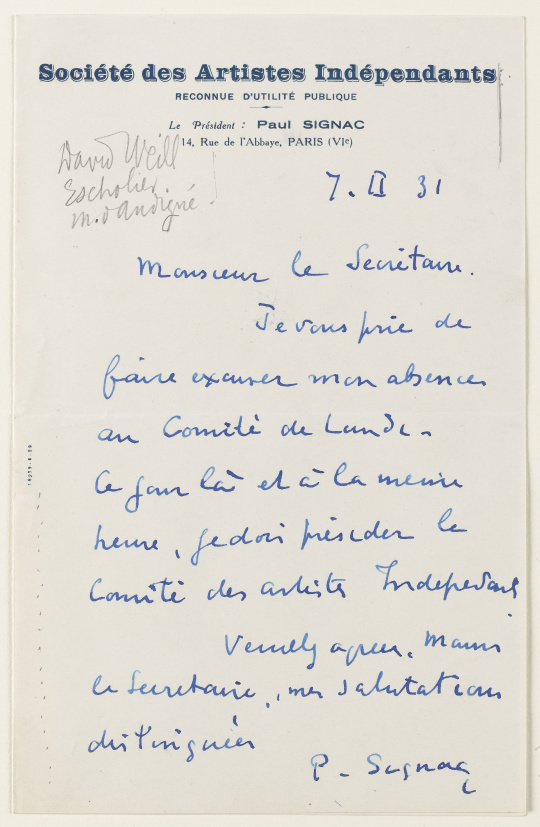 Société des Artistes Indépendants
RECONNUE D'UTILITÉ PUBLIQUE
Le Président : Paul SIGNAC
14, Rue de l'Abbaye, PARIS (VIe)
David Weill
Escholier.
m. d'andigné.
7. II 31
Monsieur le Secrétaire.
Je vous prie de
faire excuser mon absence
au Comité de Lundi.
Ce jour là et à la meme
heure, je dois présider le
Comité des artistes Indépendants
Veuillez agréer, Monsieur
le Secretaire, mes salutations
distinguées
P. Signac